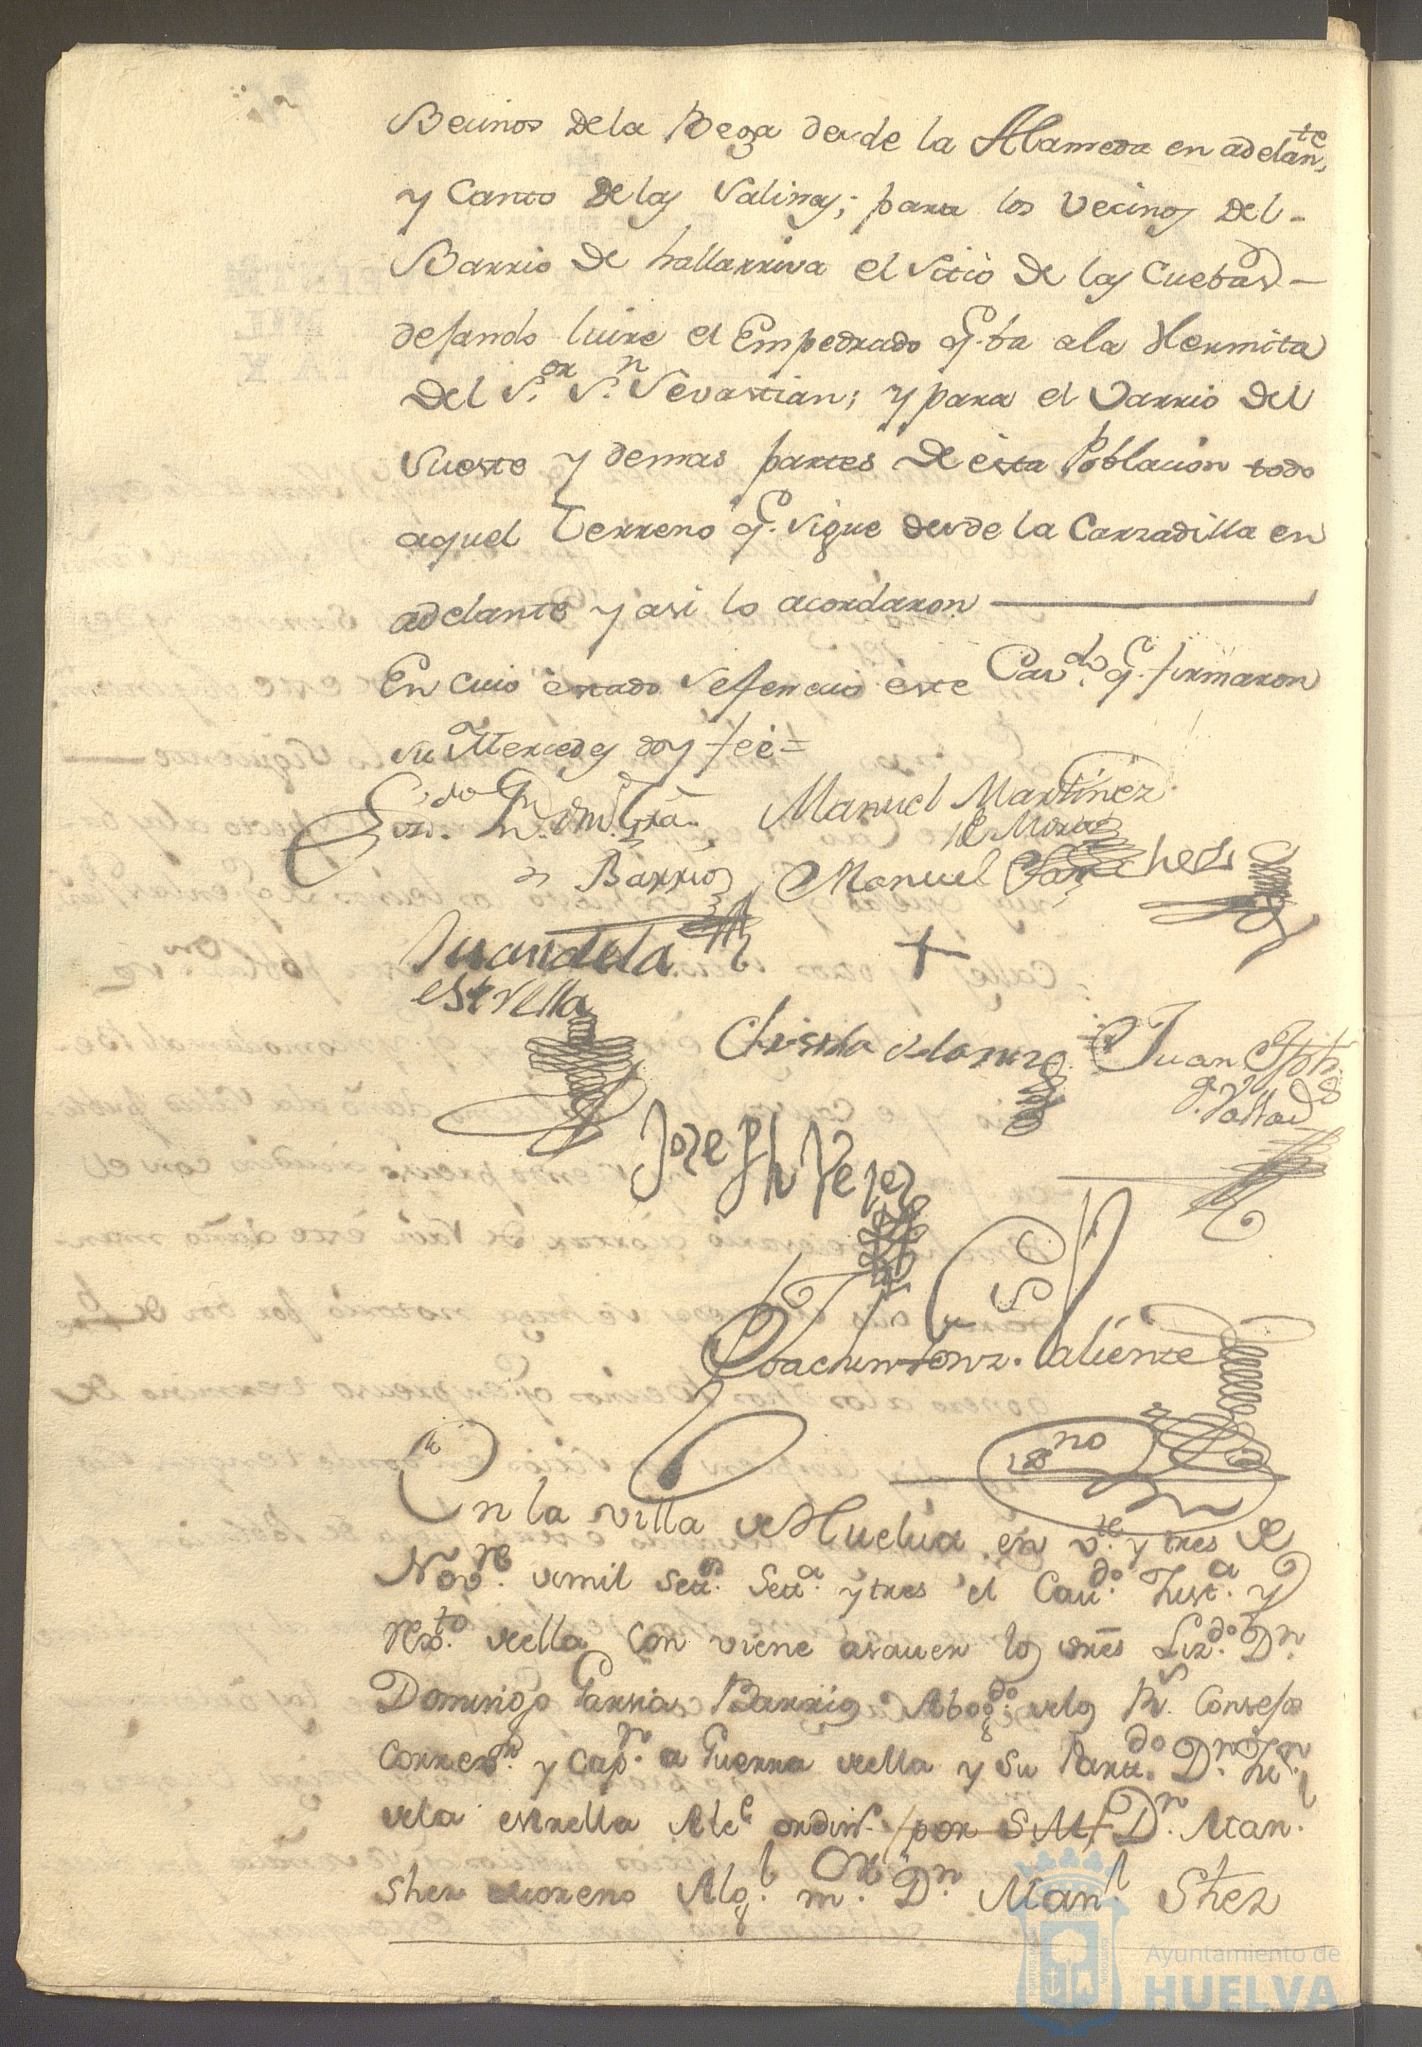 Becinos de la Bega desde la Alameda en adelan.te
y Canto de las Salinas; para los Vecinos del-
Barrio de hallarriva el Sitio de las Cuebas -
desando luire el Empedrado q. ba ala Hermita
del S.or S.n Sevastian; y para el Varrio del
Sueste y demas partes de esta Poblacion todo
aquel Terreno q. sigue desde la Carzadilla en
adelante y asi lo acordaron
En cuio estado sefenecio este Cav.do q. firmaron
su Mercedes doy fee =
Manuel Martinez
de Mora
Barrios Manuel Sanches
Juan de la
estrella
Juan Jph
Joseph Perez
Joachin Valiente
En la villa de Huelva en v.te y tres de
Nov.re de mil Set.s Set.a y tres el Cav.do Just.a y
Rex.to de ella con viene asauer los sres Liz.do D.n
Domingo Garsia Barrios Abog.do de los R.s Consejos
Correx.r y Cap.n a Guerra de ella y su Part.do D.n Ju.n
de la estrella Alc.e ordin.o / por S.M / D.n Man.l
Shez Moreno Alg.l m.or D.n Man.l Shez
Ayuntamiento de
HUELVA